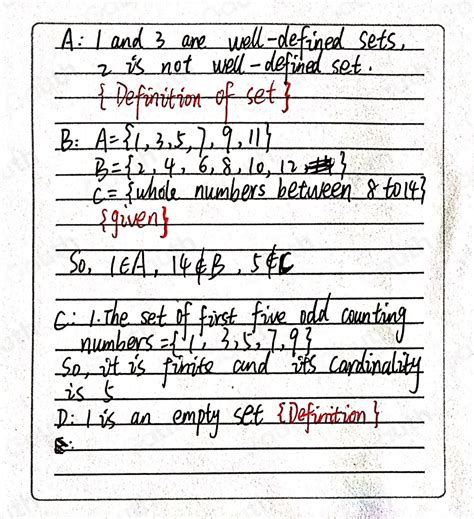 A: 1 and 3 are well-defined sets,
2 is not well-defined set.
{Definition of set}
B: A={1,3,5,7,9,11}
B={2,4,6,8,10,12}
C={whole numbers between 8 to 14}
{given}
So, 1∈A, 14∉B, 5∉C
C: 1. The set of first five odd counting
numbers={1,3,5,7,9}
So, it is finite and its cardinality
is 5
D: 1 is an empty set {Definition}